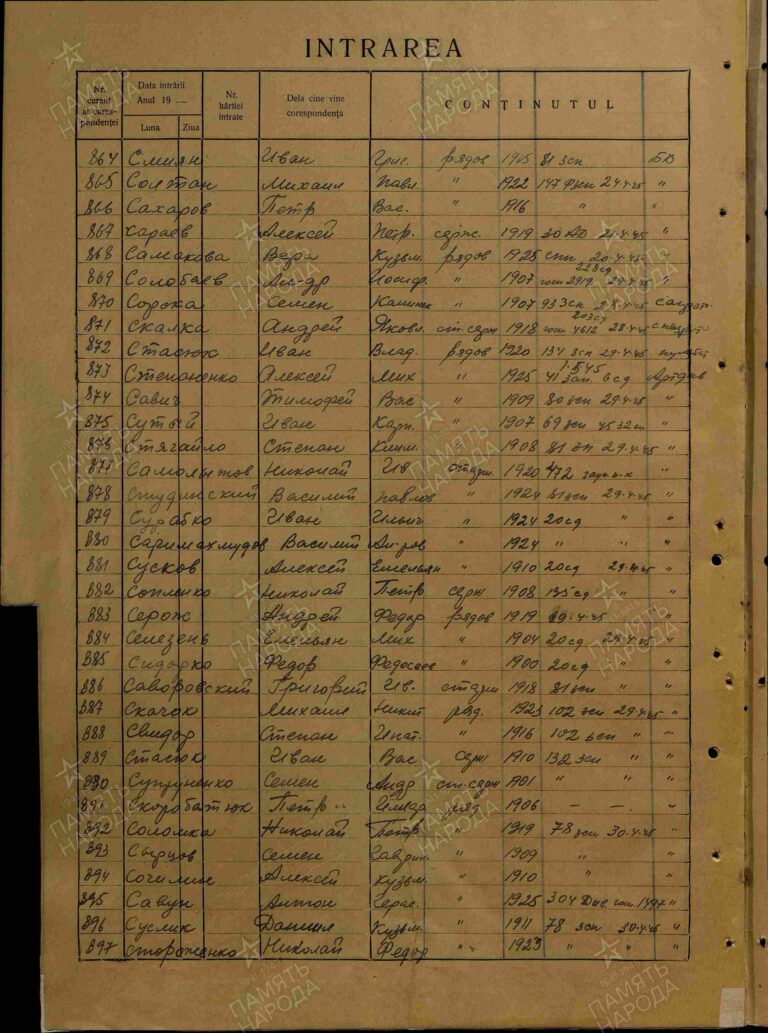 INTRAREA
Nr. curent al corespondenței Data intrării Anul 19 Luna Ziua Nr. hârtiei intrate Dela cine vine corespondența CONȚINUTUL
864 Смиян Иван Григ. рядов 1915 81 зсп БД
865 Солтан Михаил Павл. " 1922 24.4.45 "
866 Сахаров Петр Вас. " 1916 " "
867 Караев Алексей Петр. серж. 1919 21.4.45 "
868 Самакова Вера Кузьм. рядов 1925 20.4.45 "
869 Солобаев Ал-др Иосиф. " 1907 228 сд 2919 29.4.45 "
870 Сорока Семен " 1907 93 зсп 28.4.45
871 Скалка Андрей Яковл. ст. серж 1918 203 сд 4612 28.4.45
872 Стасюк Иван Влад. рядов 1920 134 зсп 29.4.45
873 Степаненко Алексей Мих " 1925 1.5.45 41 зап. 6 сд
874 Савич Тимофей Вас " 1909 80 зсп 29.4.45 "
875 Сутый Иван Карп. " 1907 69 зсп "
876 Стягайло Степан Клим. " 1908 81 зп 29.4.45 "
877 Николай Ив 1920 472 "
878 Студинский Василий Павлов " 1924 81 зсп 29.4.45 "
879 Сурабко Иван Ильич " 1924 20 сд " "
880 Саримахмудов Василий " 1924 " " "
881 Сусков Алексей Емельян " 1910 20 сд 29.4.45 "
882 Сопленко Николай Петр серж 1908 135 сд " "
883 Серож Андрей Федор рядов 1919 29.4.45 "
884 Селезень Емельян Мих " 1904 20 сд 29.4.45 "
885 Сидорко Федор Федосеев " 1900 20 сд " "
886 Саворовский Григорий Ив. 1918 81 зсп " "
887 Скачок Михаил Никит ряд. 1923 102 зсп 29.4.45 "
888 Свидор Степан Игнат. " 1916 102 зсп " "
889 Стасюк Иван Вас серж 1910 132 зсп " "
890 Супруненко Семен Андр ст. серж 1901 " " "
891 Скоробатюк Петр ряд 1906 – – "
892 Соломка Николай Петр " 1919 78 зсп 30.4.45 "
893 Сырцов Семен Гаврил. " 1909 " "
894 Сочилин Алексей Кузьм. " 1910 " "
895 Савун Антон Герас. " 1925 304 Див. 1497 "
896 Суслик Даниил Кузьм. " 1911 78 зсп 30.4.45 "
897 Стороженко Николай Федор " 1923 " " "
ПАМЯТЬ НАРОДА